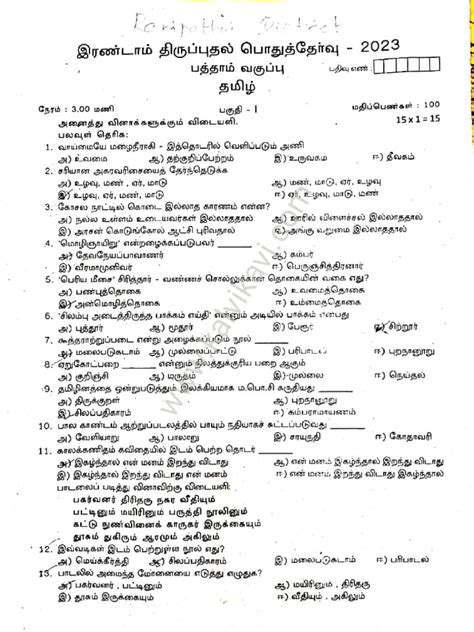 Kanipathi District
இரண்டாம் திருப்புதல் பொதுத்தேர்வு - 2023
பத்தாம் வகுப்பு
பதிவு எண் :
தமிழ்
நேரம் : 3.00 மணி பகுதி - I மதிப்பெண்கள் : 100
அனைத்து வினாக்களுக்கும் விடையளி. 15 x 1 = 15
பலவுள் தெரிக:
1. வாய்மையே மழைநீராகி - இத்தொடரில் வெளிப்படும் அணி
அ) உவமை ஆ) தற்குறிப்பேற்றம் இ) உருவகம் ஈ) தீவகம்
2. சரியான அகரவரிசையைத் தேர்ந்தெடுக்க
அ) உழவு, மண், ஏர், மாடு ஆ) மண், மாடு, ஏர், உழவு
இ) உழவு, ஏர், மண், மாடு ஈ) ஏர், உழவு, மாடு, மண்
3. கோசல நாட்டில் கொடை இல்லாத காரணம் என்ன?
அ) நல்ல உள்ளம் உடையவர்கள் இல்லாததால் ஆ) ஊரில் விளைச்சல் இல்லாததால்
இ) அரசன் கொடுங்கோல் ஆட்சி புரிவதால் ஈ) அங்கு வறுமை இல்லாததால்
4. 'மொழிஞாயிறு' என்றழைக்கப்படுபவர்
அ) தேவநேயப்பாவாணர் ஆ) கம்பர்
இ) வீரமாமுனிவர் ஈ) பெருஞ்சித்திரனார்
5. 'பெரிய மீசை' சிரித்தார் - வண்ணச் சொல்லுக்கான தொகையின் வகை எது?
அ) பண்புத்தொகை ஆ) வேற்றுமைத்தொகை
இ) அன்மொழித்தொகை ஈ) உம்மைத்தொகை
6. 'சிலம்பு அடைந்திருந்த பாக்கம் எய்தி' என்னும் அடியில் பாக்கம் என்பது
அ) புத்தூர் ஆ) மூதூர் இ) பேரூர் ஈ) சிற்றூர்
7. கூத்தராற்றுப்படை என்று அழைக்கப்படும் நூல்
அ) மலைபடுகடாம் ஆ) முல்லைப்பாட்டு இ) பரிபாடல் ஈ) புறநானூறு
8. ஏறுகோட்பறை என்னும் நிலத்துக்குரிய பறை ஆகும்
அ) குறிஞ்சி ஆ) மருதம் இ) முல்லை ஈ) நெய்தல்
9. தமிழினத்தை ஒன்றுபடுத்தும் இலக்கியமாக ம.பொ.சி கருதியது
அ) திருக்குறள் ஆ) புறநானூறு
இ) சிலப்பதிகாரம் ஈ) கம்பராமாயணம்
10. பால காண்டம் ஆற்றுப்படலத்தில் பாயும் நதியாகச் சுட்டப்படுவது
அ) வேளியாறு ஆ) பாலாறு இ) சரயுநதி ஈ) கோதாவரி
11. காலக்கணிதம் கவிதையில் இடம் பெற்ற தொடர்
அ) இகழ்ந்தால் என் மனம் இறந்து விடாது ஆ) என் மனம் இகழ்ந்தால் இறந்து விடாது
இ) இகழ்ந்தால் இறந்து விடாது என் மனம் ஈ) என் மனம் இறந்து விடாது இகழ்ந்தால்
பாடலைப் படித்து வினாவிற்கு விடையளி:
பகர்வனர் திரிதரு நகர வீதியும்
பட்டினும் மயிரினும் பருத்தி நூலினும்
கட்டு நுண்வினைக் காருகர் இருக்கையும்
தூசும் துகிரும் ஆரமும் அகிலும்
12. இவ்வடிகள் இடம் பெற்றுள்ள நூல் எது?
அ) மெய்க்கீர்த்தி ஆ) சிலப்பதிகாரம் இ) மலைபடுகடாம் ஈ) பரிபாடல்
13. பாடலில் அமைந்த மோனையை எடுத்து எழுதுக?
அ) பகர்வனர் , பட்டினும் ஆ) மயிரினும் , திரிதரு
இ) தூசும் இருக்கையும் ஈ) வீதியும் , அகிலும்